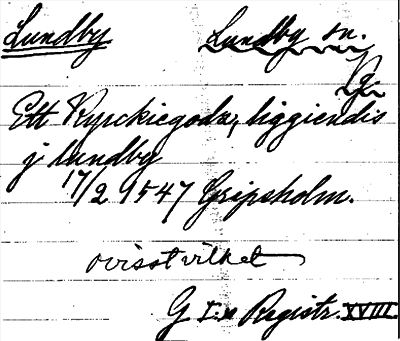 Lundby Lundby sn.
Vg.
Ett Kyrckiegodz, liggiendis
j lundby
17/2 1547 Gripsholm.
ovisst vilket
G I:s Registr. XVIII